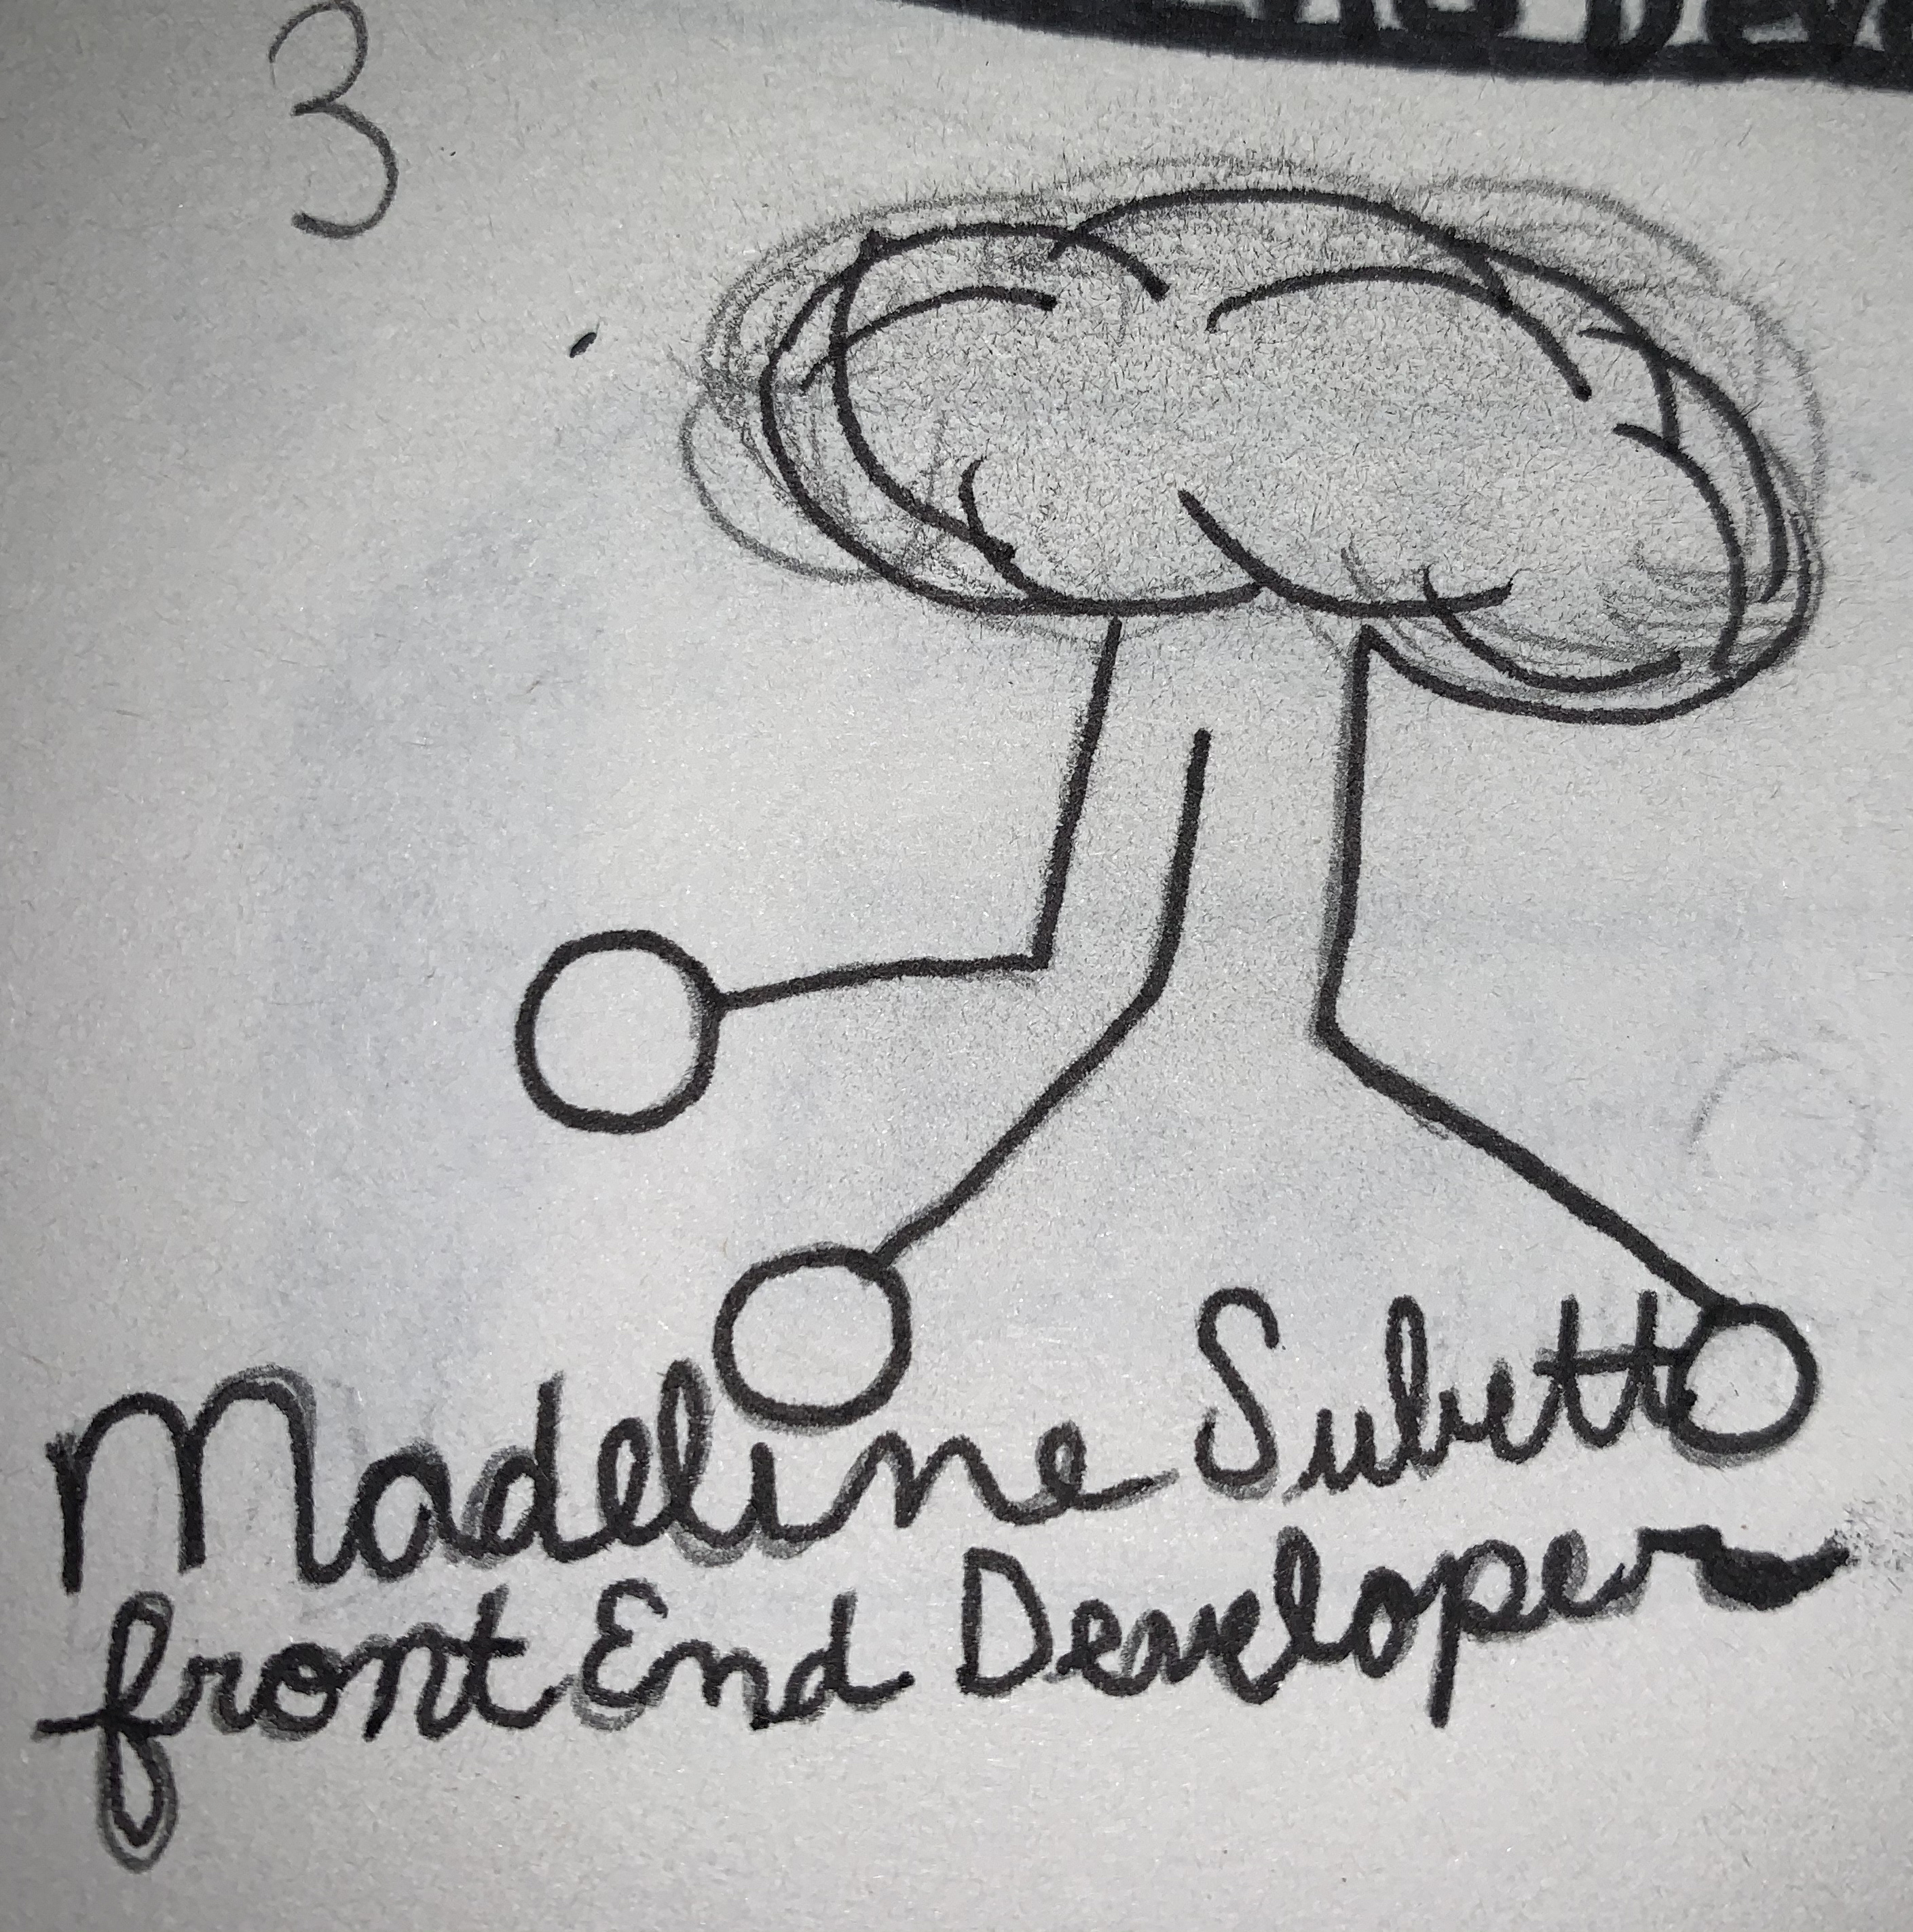 3
Madeline Subetto
front End Developer